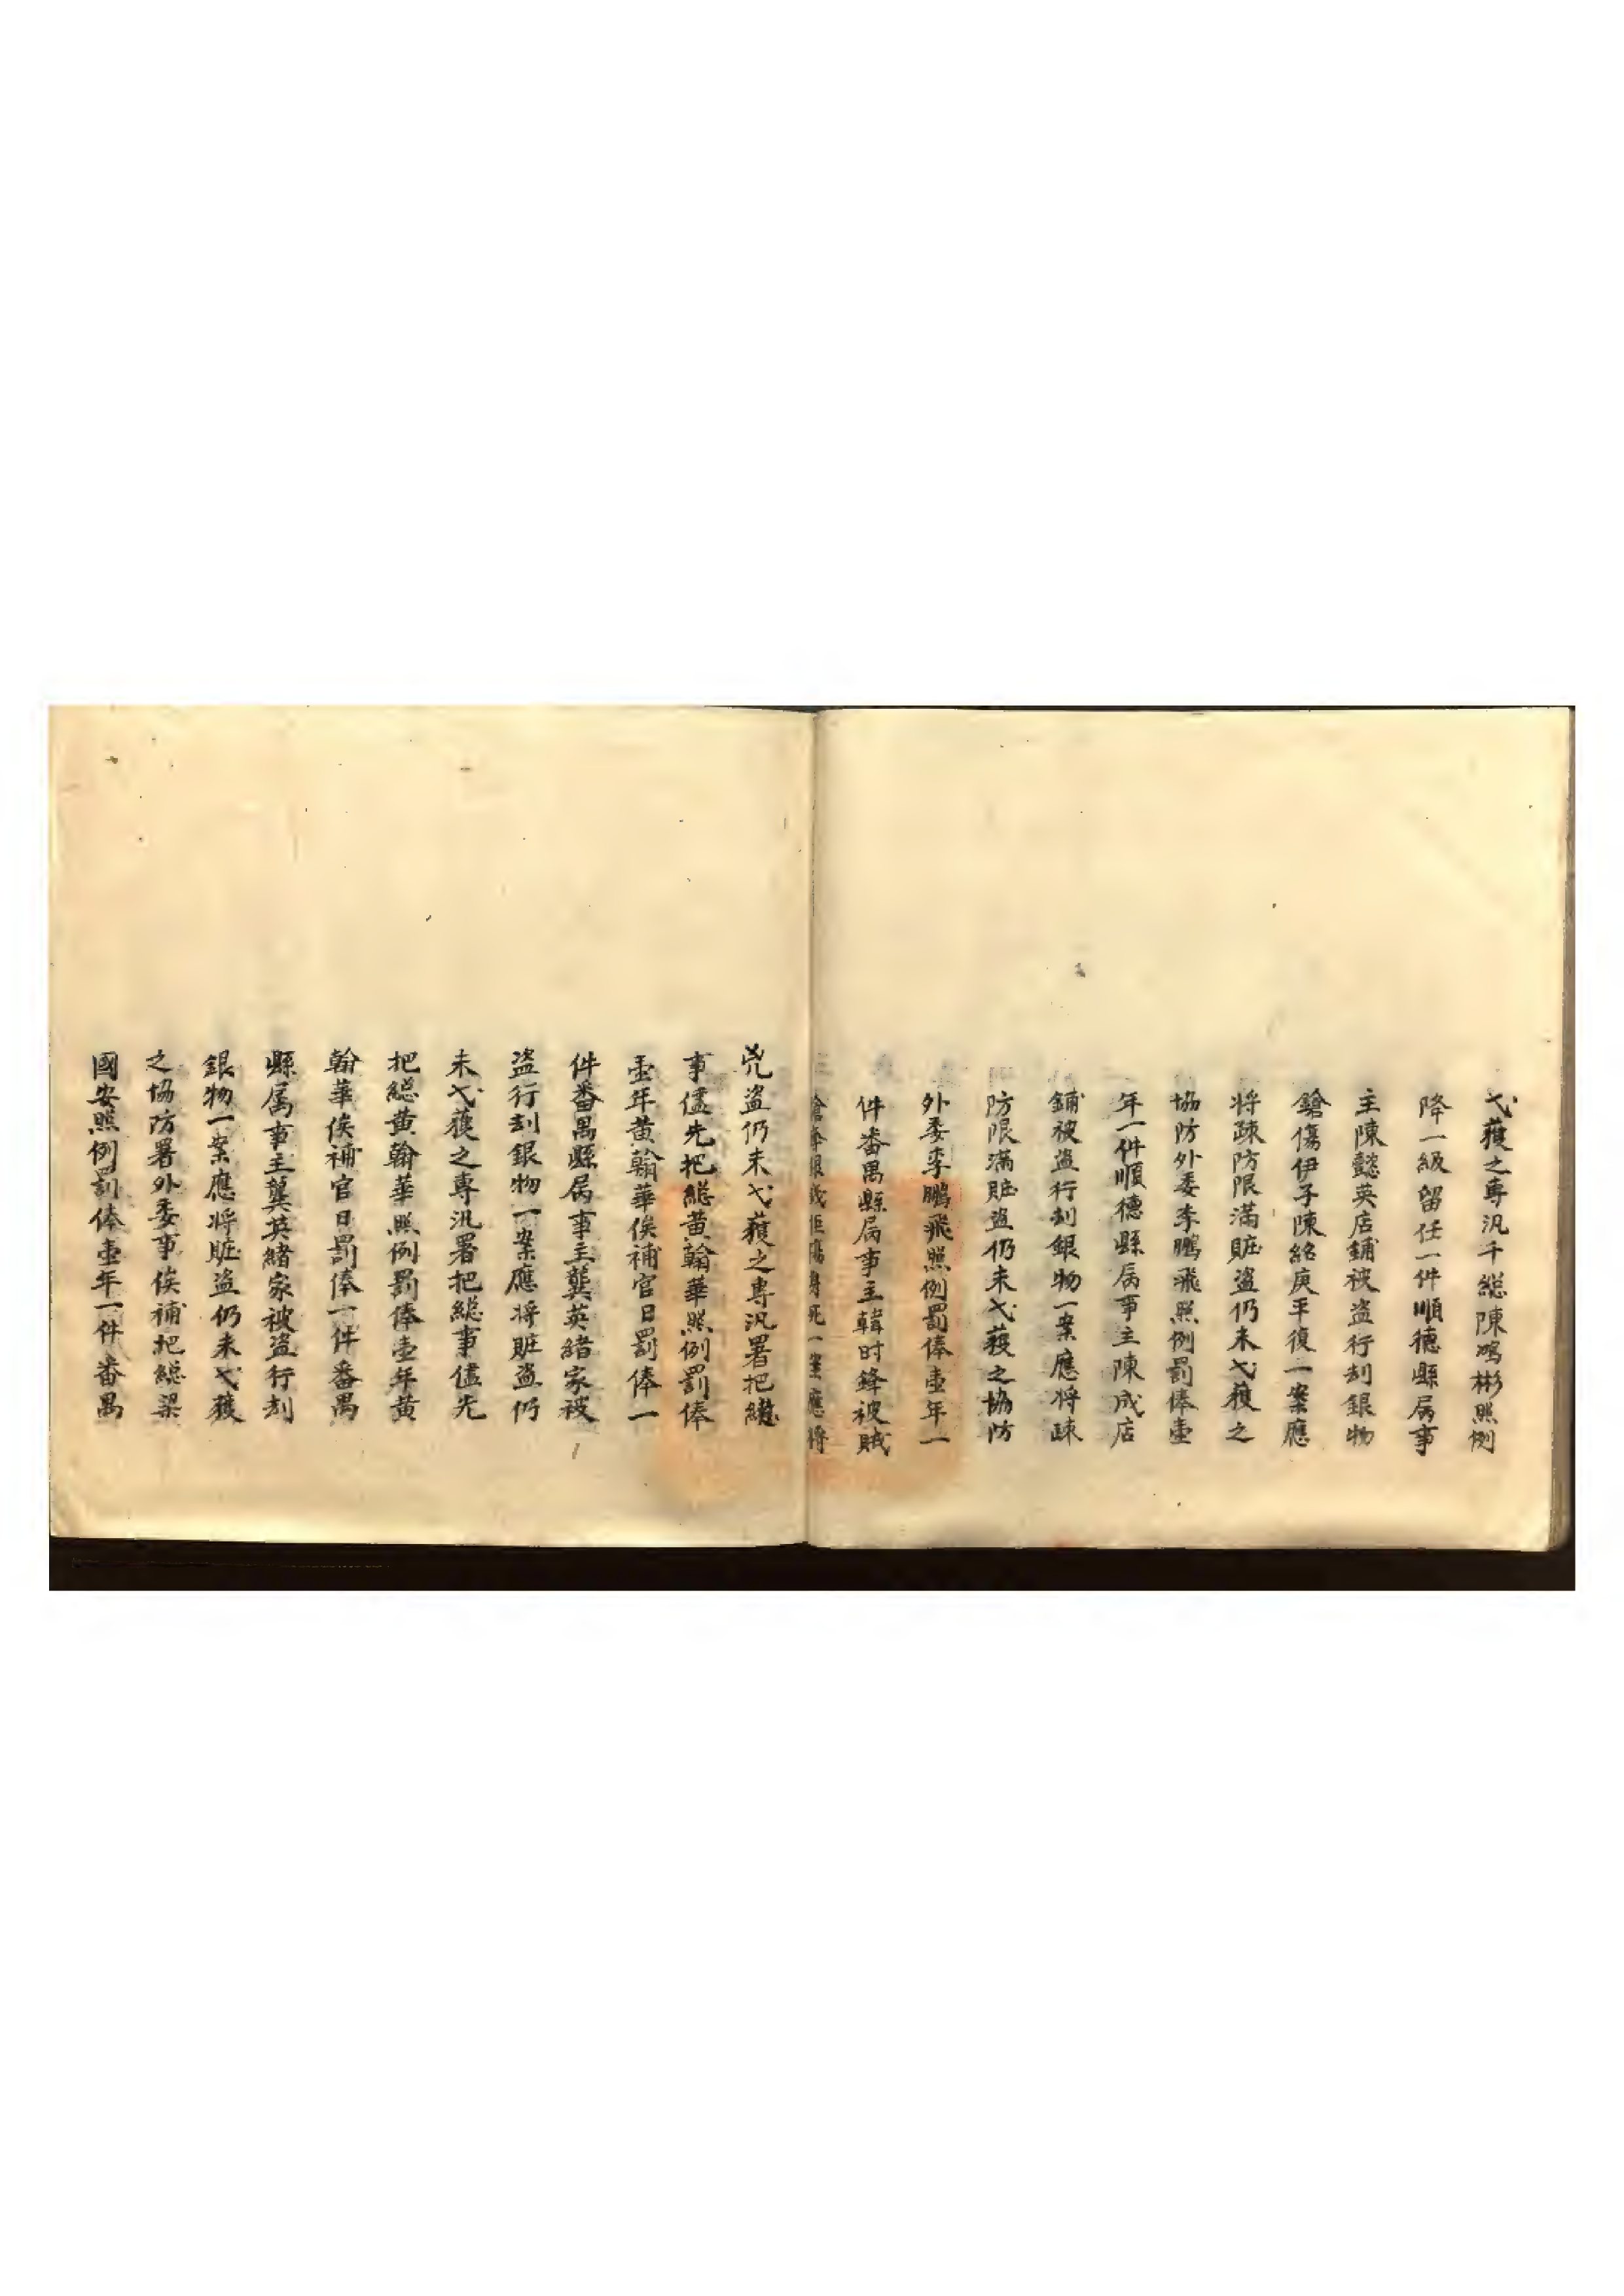 弋獲之專汛千総陳鴻彬照例
降一級留任一件順德縣属事
主陳懿英店鋪被盗行刦銀物
鎗傷伊子陳紹庚平復一案應
将疎防限滿賍盗仍未弋獲之
協防外委李鵬飛照例罰俸壹
年一件順德縣属事主陳成店
鋪被盗行刦銀物一案應将疎
防限滿賍盗仍未弋獲之協防
外委李鵬飛照例罰俸壹年一
件番禺縣属事主韓时鋒被賊
身死一案應将
兇盗仍未弋獲之専汛署把総
事儘先把総黄翰華照例罰俸
壹年黄翰華俟補官日罰俸一
件番禺縣属事主龔英緒家被
盗行刦銀物一案應将賍盗仍
未弋獲之專汛署把総事儘先
把総黄翰華照例罰俸壹年黄
翰華俟補官日罰俸一件番禺
縣属事主龔英緒家被盗行刦
銀物一案應将賍盗仍未弋獲
之協防署外委事俟補把総梁
國安照例罰俸壹年一件番禺